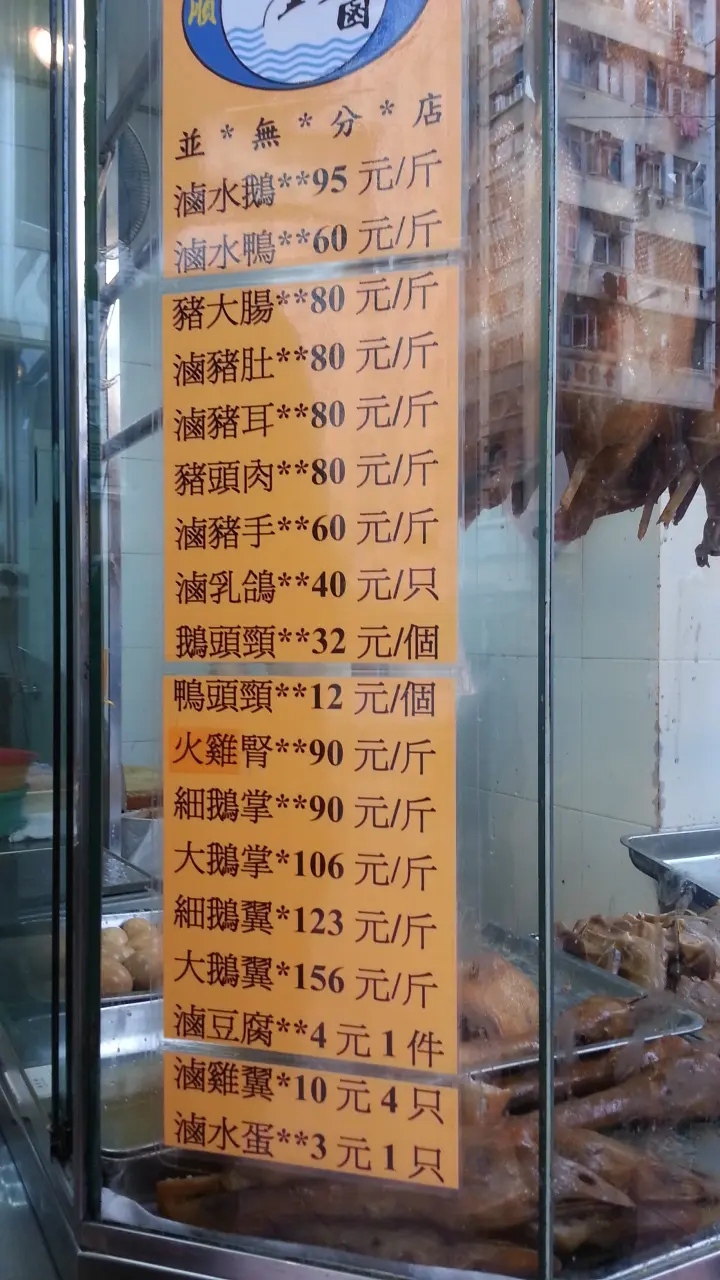 順
鹵
並*無*分*店
滷水鵝**95元/斤
滷水鴨**60元/斤
豬大腸**80元/斤
滷豬肚**80元/斤
滷豬耳**80元/斤
豬頭肉**80元/斤
滷豬手**60元/斤
滷乳鴿**40元/只
鵝頭頸**32元/個
鴨頭頸**12元/個
火雞腎**90元/斤
細鵝掌**90元/斤
大鵝掌*106元/斤
細鵝翼*123元/斤
大鵝翼*156元/斤
滷豆腐**4元1件
滷雞翼*10元4只
滷水蛋**3元1只